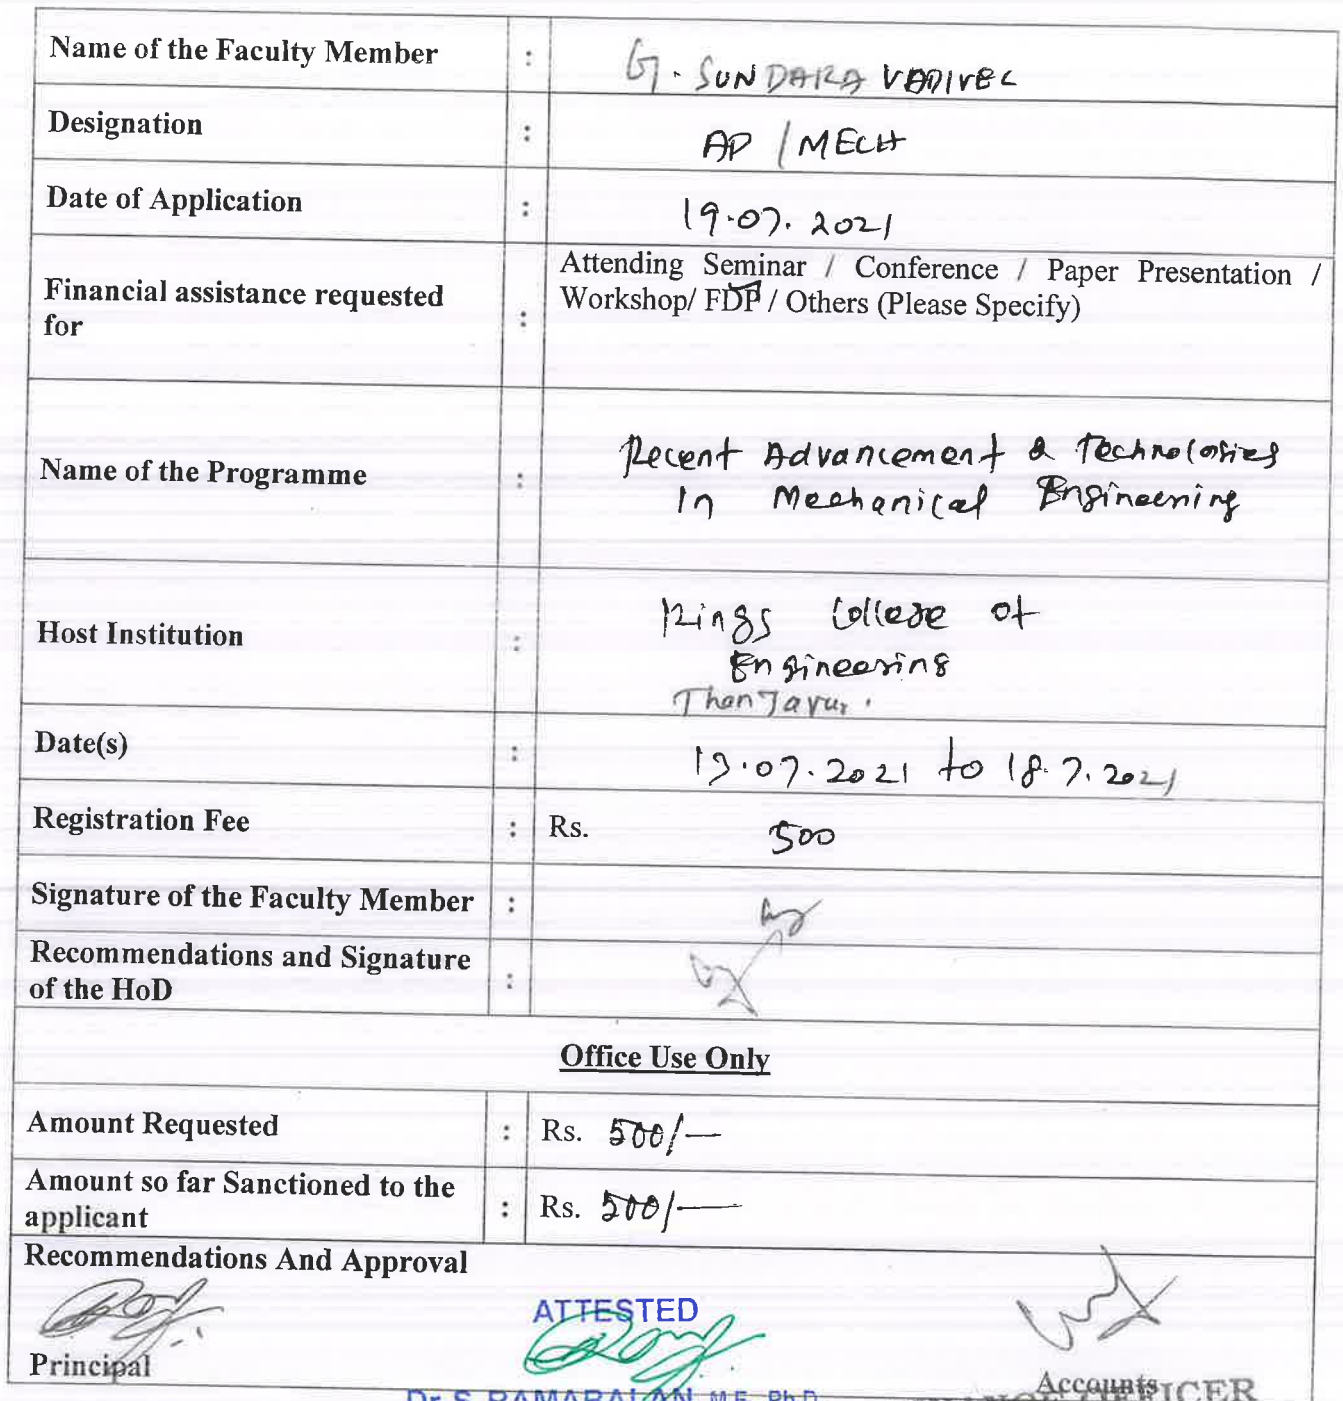 Name of the Faculty Member : G. SUNDARA VADIVEL
Designation : AP / MECH
Date of Application : 19.07.2021
Attending Seminar / Conference / Paper Presentation /
Financial assistance requested for : Workshop/ FDP / Others (Please Specify)
Name of the Programme : Recent Advancement & Technologies
In Mechanical Engineering
Host Institution : Kings College of
Engineering
Thanjavur.
Date(s) : 13.07.2021 to 18.7.2021
Registration Fee : Rs. 500
Signature of the Faculty Member :
Recommendations and Signature
of the HoD :
Office Use Only
Amount Requested : Rs. 500/-
Amount so far Sanctioned to the
applicant : Rs. 500/-
Recommendations And Approval
ATTESTED
Principal
Accounts
Dr. S. RAMABALAN, M.E., Ph.D.